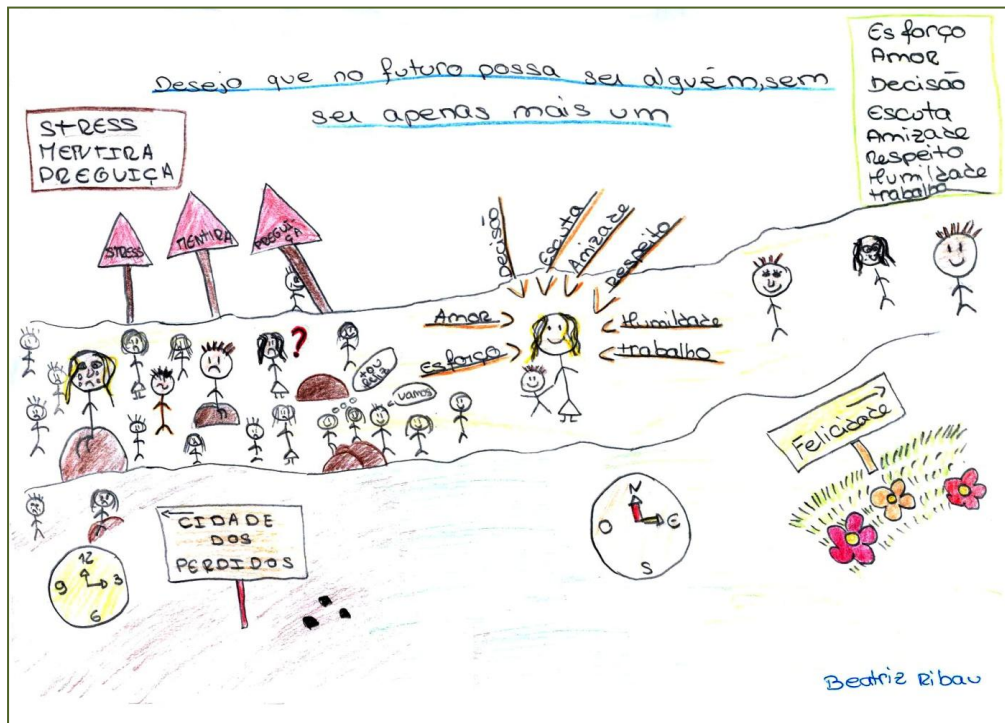 Desejo que no futuro possa ser alguém, sem
ser apenas mais um
STRESS
MENTIRA
PREGUIÇA
Esforço
Amor
Decisão
Escuta
Amizade
Respeito
Humildade
trabalho
STRESS
MENTIRA
PREGUI-
ÇA
Decisão
Escuta
Amizade
Respeito
Amor
Humildade
Esforço
trabalho
?
vamos
Felicidade
CIDADE
DOS
PERDIDOS
12
9
3
6
N
O
E
S
Beatriz Ribau